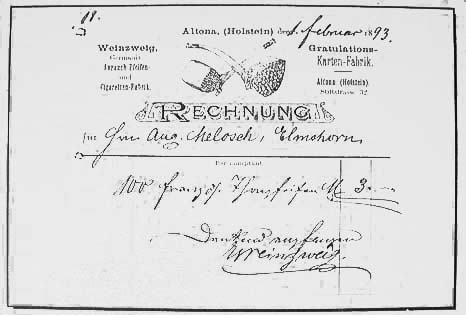 18.
Altona, (Holstein) den 1. Februar 1893.
Weinzweig,
Germania
Jerusch Pfeifen-
und
Cigaretten-Fabrik.
Gratulations-
Karten-Fabrik.
Altona (Holstein).
RECHNUNG
für Hrn Aug. Melosch, Elmshorn
Per comptant
100 französ. Thonpfeifen M 3.—
Dankend empfangen
Weinzweig.